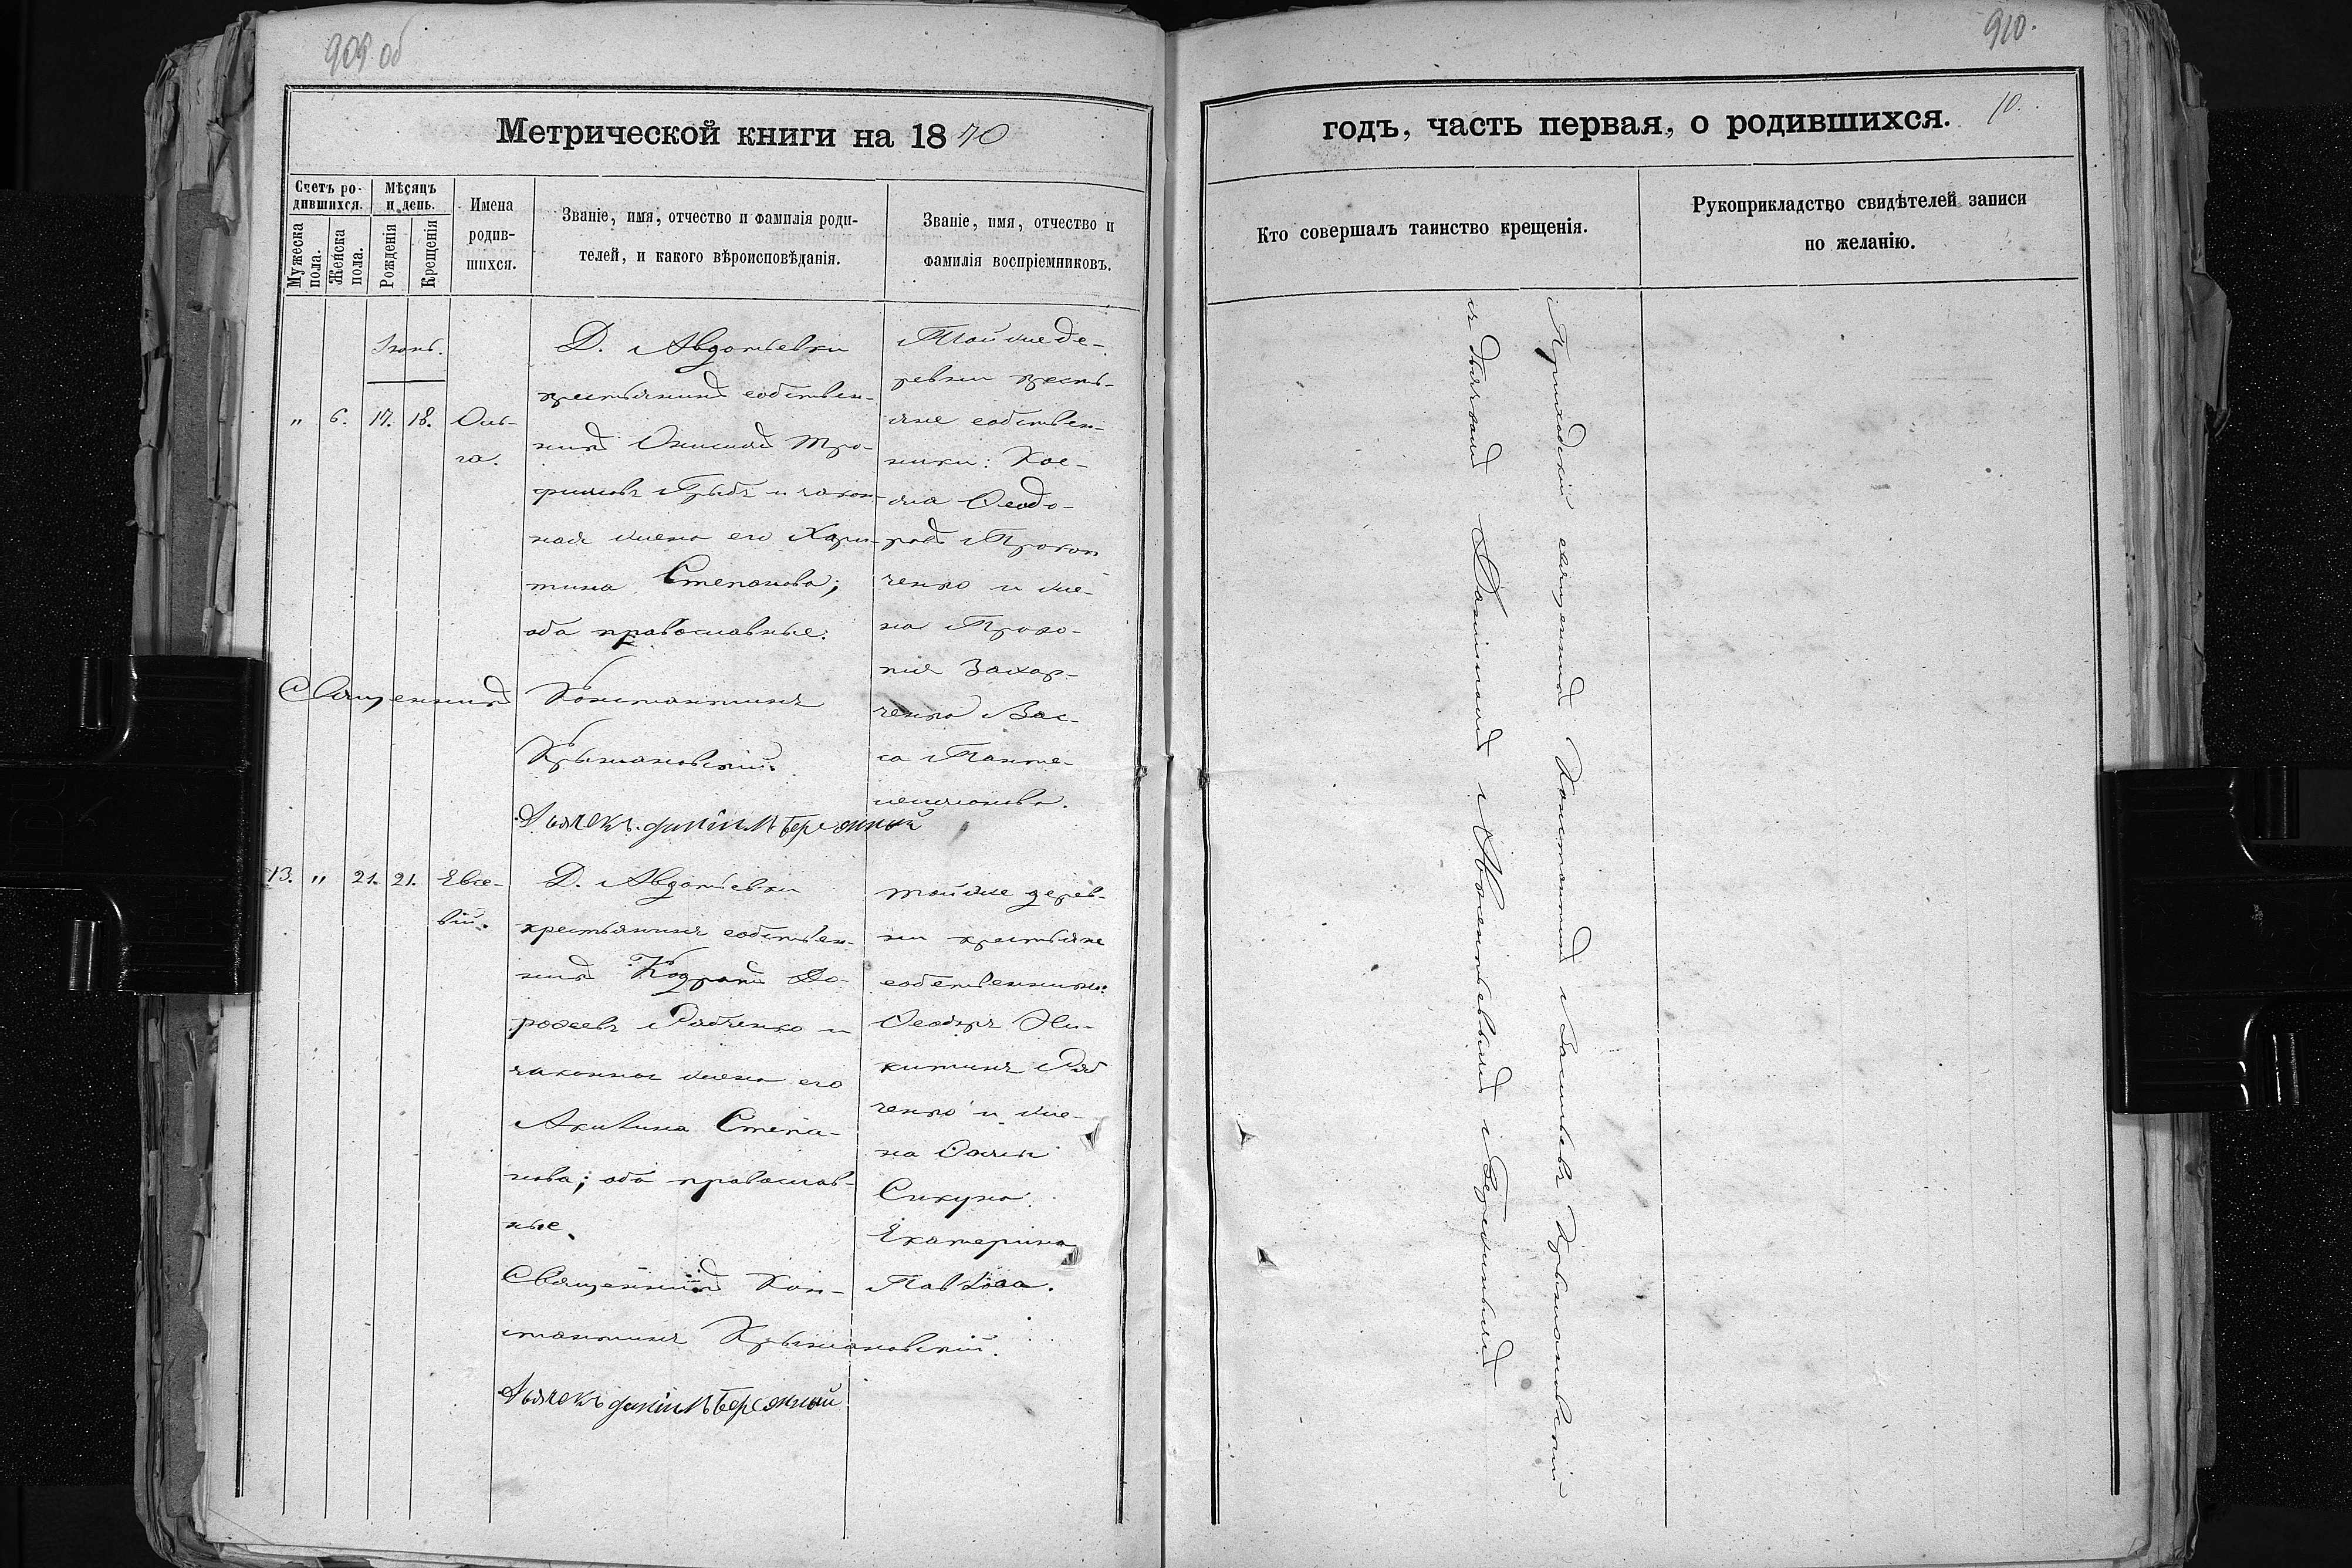 909 об
Метрической книги на 1870
Счетъ ро-
дившихся.
Мужеска пола.
Женска пола.
Мѣсяцъ
и день.
Рожденія
Крещенія
Имена
родив-
шихся.
Званіе, имя, отчество и фамилія роди-
телей, и какого вѣроисповѣданія.
Званіе, имя, отчество и
фамилія воспріемниковъ.
Іюнь.
" 6. 17. 18.
Оль-
га.
Д. Авдотьевки
крестьянинъ собствен-
никъ Онисимъ Тро-
фимовъ и закон-
ная жена его Хари-
тина Степанова;
оба православные.
Священникъ Константинъ
Крыжановскій.
Дьячекъ Даніилъ Бережный
Той же де-
ревни кресть-
яне собствен-
ники:
Ѳеодо-
ровъ Прокоп
ченко и же-
на Проко-
пія Захар-
ченка Вас-
са Панте-
леимонова.
13. " 21. 21.
Евсе-
вій.
Д. Авдотьевки
крестьянинъ собствен-
никъ Кодратъ До-
роѳеевъ Рябченко и
законная жена его
Акилина Степа-
нова; оба православ-
ные.
Священникъ Кон-
стантинъ Крыжановскій.
Дьячекъ Даніилъ Бережный
той же дерев-
ни крестьяне
собственники:
Ѳеодоръ Ни-
китинъ Ряб
ченко и же-
на Ѳомы
Сикуна
Екатерина
Павлова.
910.
годъ, часть первая, о родившихся.
10.
Кто совершалъ таинство крещенія.
Рукоприкладство свидѣтелей записи
по желанію.
Приходскій священникъ Константинъ Васильевъ Крыжановскій
съ дьячкомъ Даніиломъ Бережнымъ